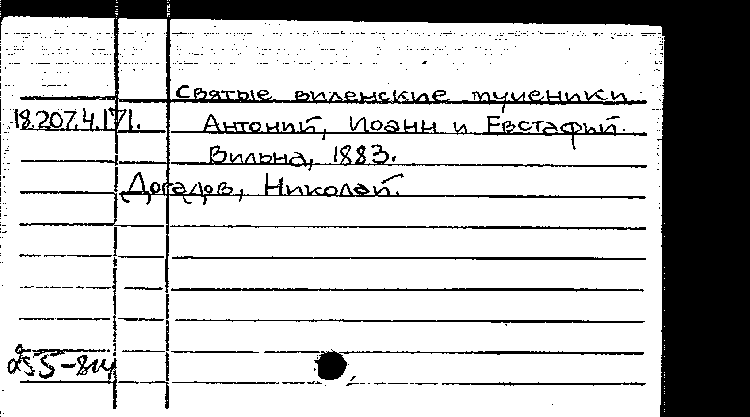 Святые виленские мученики
18.207.4.171. Антоний, Иоанн и Евстафий.
Вильна, 1883.
Догадов, Николай.